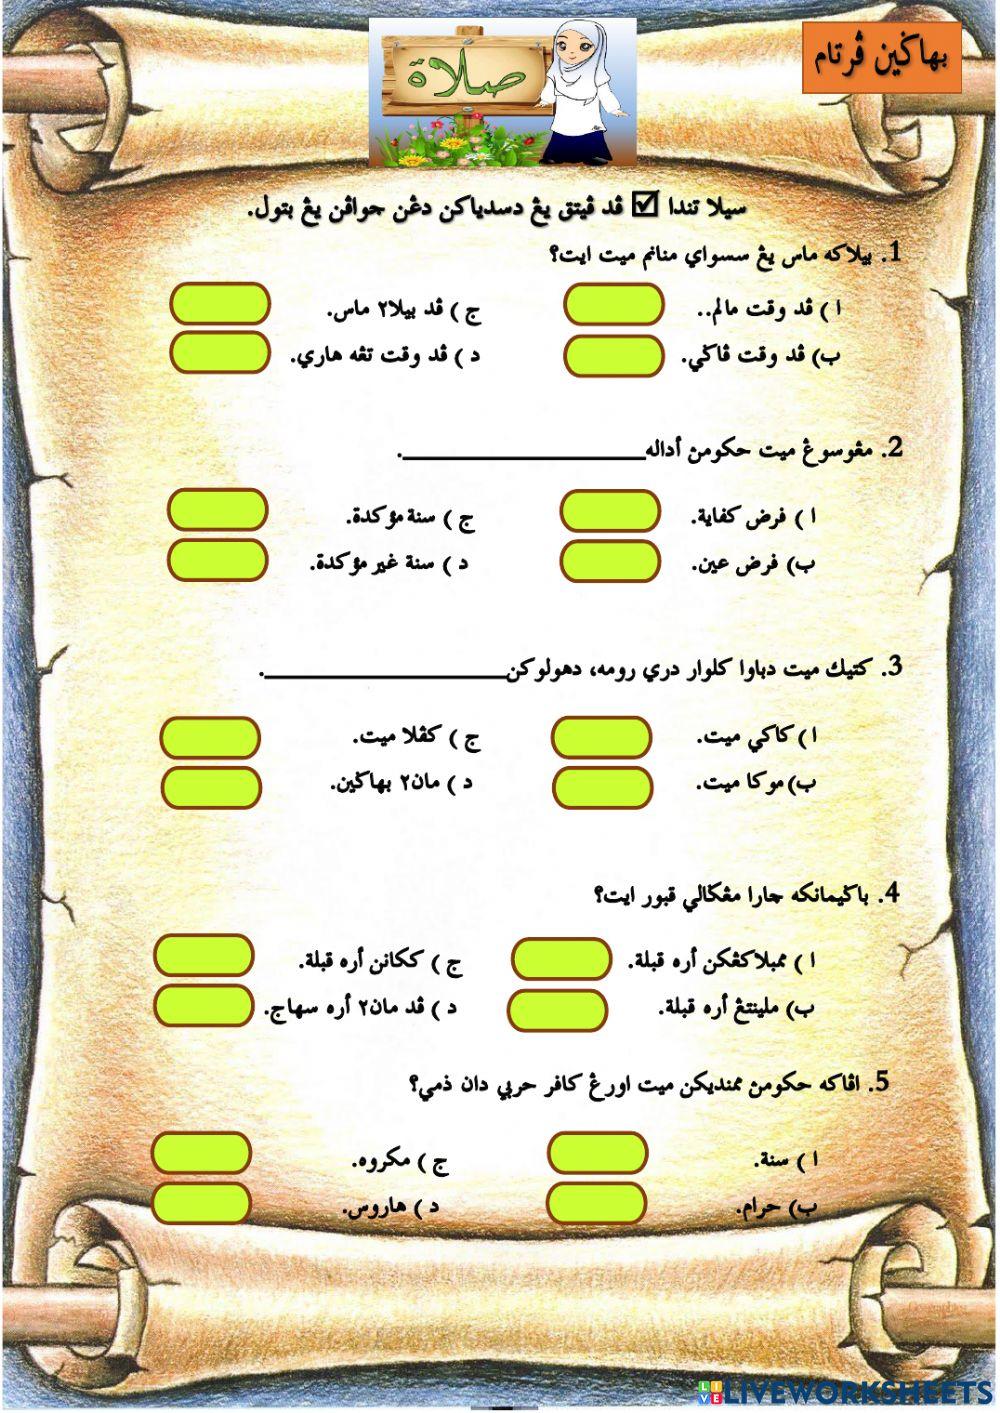 بهاݢين ڤرتام
صلاة
سيلا تندا ☑ ڤد ڤيتق يڠ دسدياكن دڠن جواڤن يڠ بتول.
1. بيلاكه ماس يڠ سسواي منانم ميت ايت؟
ا ) ڤد وقت مالم..
ج ) ڤد بيلا٢ ماس.
ب) ڤد وقت ڤاݢي.
د ) ڤد وقت تڠه هاري.
2. مڠوسوڠ ميت حكومن أداله____________.
ا ) فرض كفاية.
ج ) سنة مؤكدة.
ب) فرض عين.
د ) سنة غير مؤكدة.
3. كتيك ميت دباوا كلوار دري رومه، دهولوكن____________.
ا ) كاكي ميت.
ج ) كڤلا ميت.
ب) موكا ميت.
د ) مان٢ بهاݢين.
4. باݢيمانكه جارا مڠݢالي قبور ايت؟
ا ) ممبلاكڠكن أره قبلة.
ج ) ككانن أره قبلة.
ب) ملينتڠ أره قبلة.
د ) ڤد مان٢ أره سهاج.
5. اڤاكه حكومن ممنديكن ميت اورڠ كافر حربي دان ذمي؟
ا ) سنة.
ج ) مكروه.
ب) حرام.
د ) هاروس.
LIVE LIVEWORKSHEETS